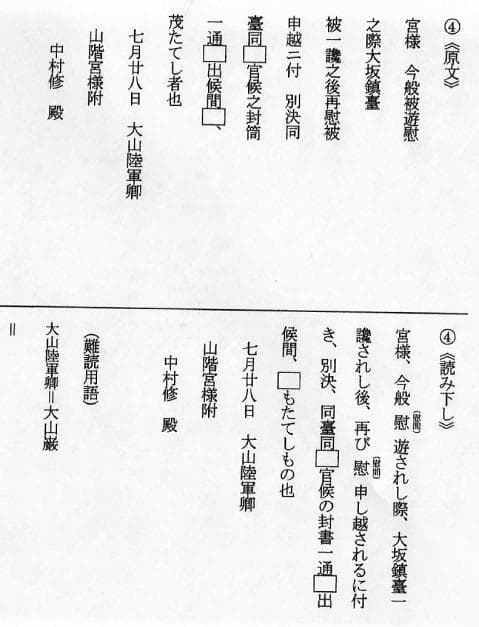 ④《原文》
宮様 今般被遊慰
之際大坂鎮臺
被一讒之後再慰被
申越ニ付 別決同
臺同□官候之封筒
一通□出候間□、
茂たてし者也
七月廿八日 大山陸軍卿
山階宮様附
中村修 殿
④《読み下し》
宮様、今般慰(慰問)遊されし際、大坂鎮臺一
讒されし後、再び慰(慰問)申し越されるに付
き、別決、同臺同□官候の封書一通□出
候間、□もたてしもの也
七月廿八日 大山陸軍卿
山階宮様附
中村修 殿
(難読用語)
大山陸軍卿＝大山巌
＝